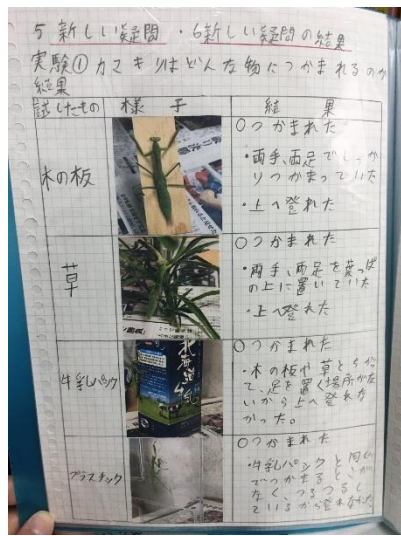 5 新しい疑問 ・6新しい疑問の結果
実験① カマキリはどんな物につかまれるのか
結果
試したもの 様子 結果
木の板
○つかまれた
・両手、両足でしっか
りつかまっていた
・上へ登れた
草
○つかまれた
・両手、両足を葉っぱ
の上に置いていた
・上へ登れた
牛乳パック
北海道
○つかまれた
・木の板や草とちがっ
て、足を置く場所がな
いから上へ登れな
かった。
プラスチック
○つかまれた
・牛乳パックと同じ
でつかまるところが
なく、つるつるし
ているから登れなかった